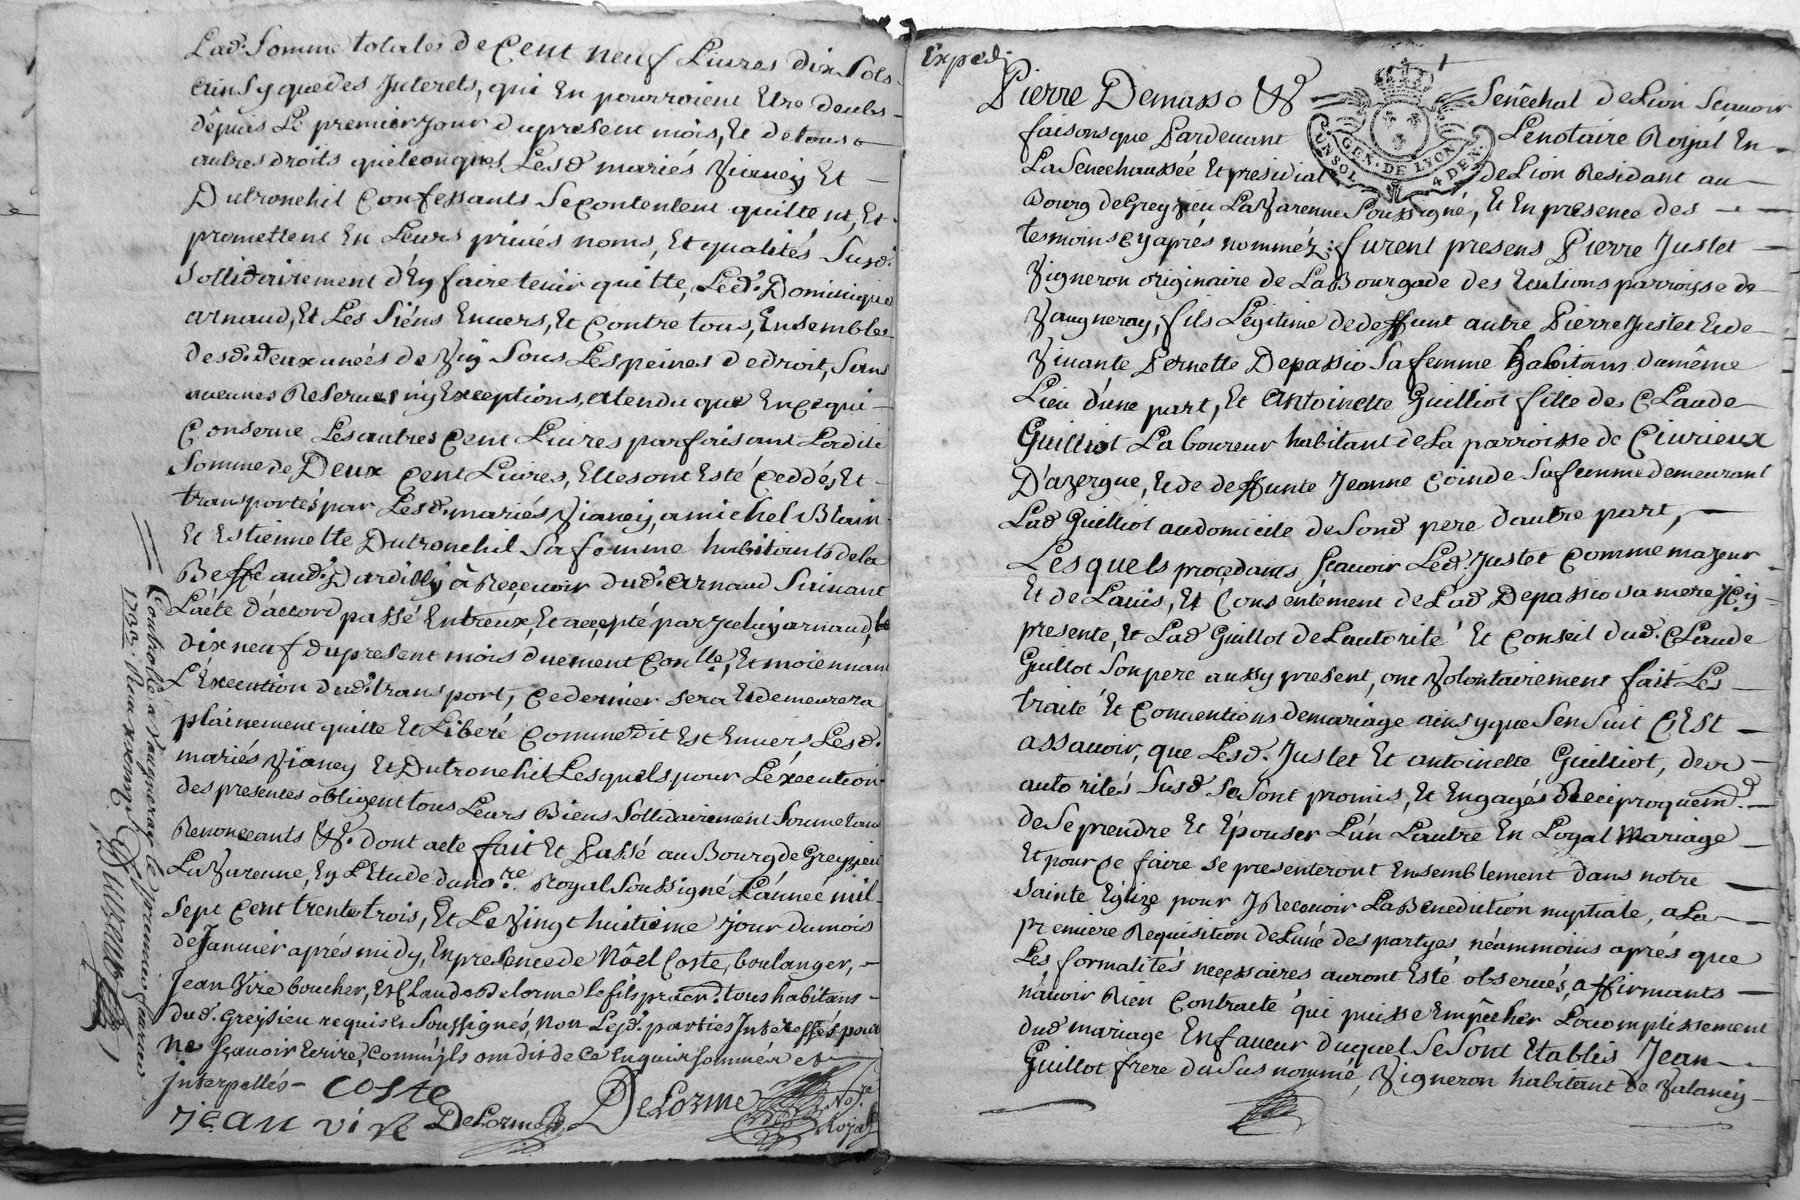 Lad. Somme totales de Cent neuf Livres dix Sols
ainsy que des Jnterets, qui En pourroient Etre deubs
dépuis Le premier jour du present mois, Et de tous
autres droits quelconques Lesd. mariés Vianey Et
Dutronchil Confessants Se contentent quittent, Et
promettent En Leurs privés noms, Et qualités Susd.
Sollidairement d'En faire tenir quitte, Led. Dominique
arnaud, Et Les Siéns Envers, Et Contre tous, Ensembles
desd. deux anées de Vin Sous Les peines de droit, Sans
aucunes Reserves ny Exceptions, attendu que En ce qui
Conserne Les autres Cent Livres parfaisant Ladite
Somme de Deux Cent Livres, Elles ont Esté Ceddés, Et
transportés par Lesd. mariés Vianey, a michel Blain
Et Estiennette Dutronchil Sa femme habitants de la
Beffe aud. Dardilly à Recevoir dud. Arnaud Suivant
L'acte d'accord passé Entreux, Et accepté par Jceluy arnaud, le
dix neuf du present mois duement Conllé, Et moiennant
L'Execution dud. transport, Ce dernier sera Et demeurera
plainement quitte Et Libéré Comme dit Est Envers Lesd.
mariés Vianey Et Dutronchil Lesquels pour L'éxecution
des presentes obligent tous Leurs Biens Sollidairement Soumettant
Renonceants &c. dont acte fait Et Passé au Bourg de Greyzieu
La Varenne, En L'Etude du nore. Royal Soussigné L'année mil
Sept Cent trente trois, Et Le Vingt huitième jour du mois
de Janvier aprés midy, En presence de Nöel Coste, boulanger,
Jean Vire boucher, Et Claude Delorme le fils praen. tous habitans
dud. Greysieu requis Et Soussignés, Non Lesd. parties Jnteressés pour
ne sçavoir Ecrire, Comm'jls ont dit de Ce Enquis sommés et
Jnterpellés
Coste
jean vire Delorme Delorme Nore. Royal
Controllé a Vaugneray le premier fevrier
1733. Reçu
Exped.
Pierre Demasso &c Senêchal de Lion Scavoir
faisons que Pardevant Le notaire Royal En
GEN. DE LYON
UN SOL 4 DEN.
La Senechaussée Et presidial de Lion Residant au
Bourg de Greyzieu La Varenne Soussigné, Et En presence des
temoins Cy aprés nommèz; furent presens Pierre Justet
Vigneron originaire de La Bourgade des parroisse de
Vaugneray, fils Légitime de deffunt autre Pierre Justet Et de
Vivante Pernette Depassio Sa femme habitans du même
Lieu d'une part, Et Antoinette Guilliot fille de Claude
Guilliot Laboureur habitant de La parroisse de Civrieux
D'azergue, Et de deffunte Jeanne Coinde Sa femme demeurant
Lad. Guilliot au domicile de Sond. pere d'autre part,
Lesquels procedants sçavoir Led. Justet Comme majeur
Et de L'avis, Et Consentement de Lad. Depassio sa mere Jcy
presente, Et Lad. Guillot de L'autorité Et Conseil dud. Claude
Guillot Son pere aussy present, ont Volontairement fait Les
traité Et Conventions de mariage ainsy que S'en Suit C'Est
assavoir, que Lesd. Justet Et antoinette Guilliot, de
autorités Susd. Se Sont promis, Et Engagés Reciproquem.
de Se prendre Et Epouser L'un L'autre En Loyal Mariage
Et pour Ce faire se presenteront Ensemblement dans notre
Sainte Eglize pour J Recevoir La Benediction nuptiale, a La
premiere Requisition de L'une des partyes, néammoins aprés que
Les formalités necessaires auront Esté observés, affirmants
n'avoir Rien Contracté qui puisse Empêcher L'acomplissement
dud mariage En faveur duquel Se Sont Etablis Jean
Guillot frere du Sus nommé, Vigneron habitant de Valancy